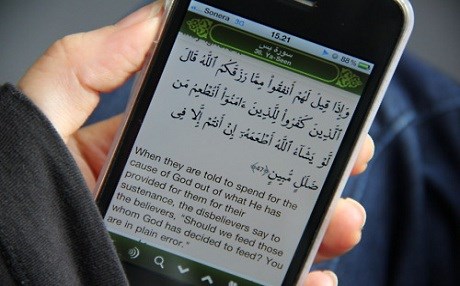 Sonera 3G
15.21
88 %
سورة يس
36. Ya-Seen
وَإِذَا قِيلَ لَهُمْ أَنفِقُوا۟ مِمَّا رَزَقَكُمُ ٱللَّهُ قَالَ
ٱلَّذِينَ كَفَرُوا۟ لِلَّذِينَ ءَامَنُوٓا۟ أَنُطْعِمُ مَن
لَّوْ يَشَآءُ ٱللَّهُ أَطْعَمَهُۥٓ إِنْ أَنتُمْ إِلَّا فِى
ضَلَـٰلٍ مُّبِينٍ ﴿٤٧﴾
When they are told to spend for the
cause of God out of what He has
provided for them for their
sustenance, the disbelievers say to
the believers, "Should we feed those
whom God has decided to feed? You
are in plain error."